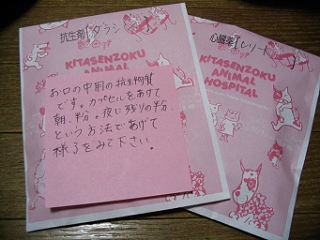 抗生剤 ダラシ
KITASENZOKU
ANIMAL
お口の中用の抗生物質
です。カプセルをあけて
朝、半分。夜に残りの半分
という方法であげて
様子をみて下さい。
心臓薬
KITASENZOKU
ANIMAL
HOSPITAL